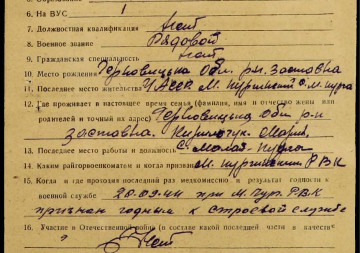 6. На ВУС 1
7. Должностная квалификация нет
8. Военное звание Рядовой
9. Гражданская специальность нет
10. Место рождения Черновицька Обл. р-н. заставна
11. Последнее место жительства УАССР М. Пургинский с. М. Пурга
12. Где проживает в настоящее время семья (фамилия, имя и отчество жены или
родителей и точный их адрес) Черновицька Обл р-н
заставна. Мария.
13. Последнее место работы и должность с Малая-Пурга
14. Каким райгорвоенкоматом и когда призван М. Пургинским РВК
15. Когда и где проходил последний раз медкомиссию и результат годности к
военной службе 20.09.44 при М. Пур. РВК
признан годным к строевой службе
16. Участие в Отечественной войне (в составе какой последней части и в качестве
Нет